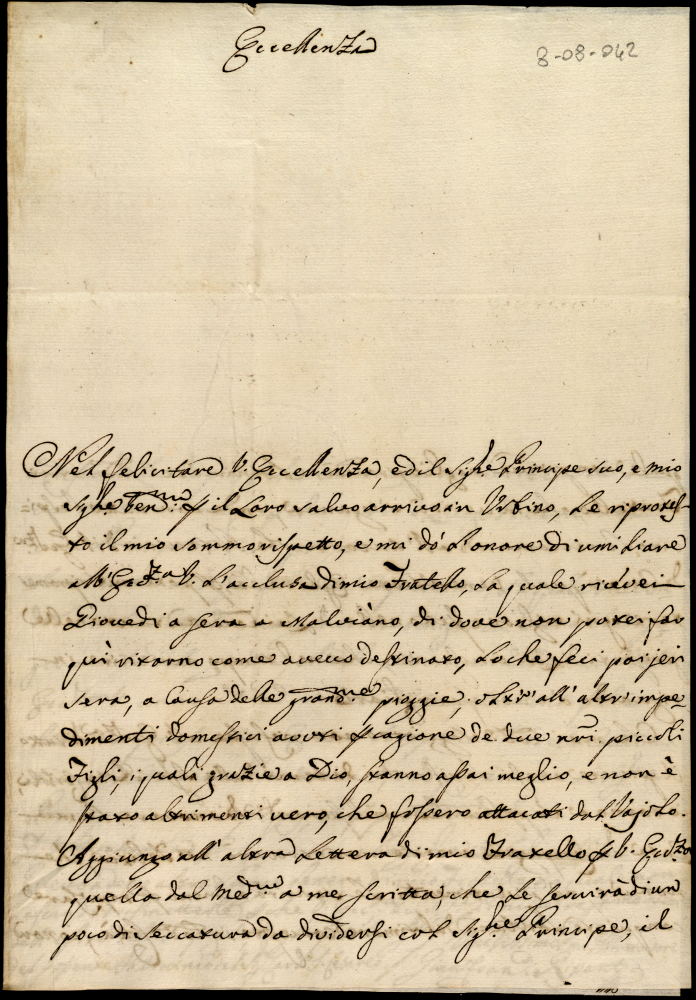 Eccellenza
8-08-042
Nel felicitare V. Eccellenza, ed il Sigr.e Principe suo, e mio
Sigr.e Ven.mo p il Loro salvo arrivo in Urbino, Le riprotes-
to il mio sommo rispetto, e mi dò l'onore di umiliare
all' Ecc.za V. l'acclusa di mio Fratello, la quale ricevei
Giovedi a sera a Malviàno, di dove non potei far
quì ritorno come avevo destinato, lo che feci poi jeri
sera, a causa delle grand.me pioggie, oltr' all' altr' impe-
dimenti domestici avuti p cagione de due nri piccoli
Figli, i quali grazie a Dio, stanno assai meglio, e non è
stato altrimenti vero, che fossero attacati dal Vajolo.
Aggiungo all' altra Lettera di mio Fratello p V. Ecc.za
quella dal Med.mo a me scritta, che Le servirà di un
poco di seccatura da dividersi col Sigr.e Principe, il